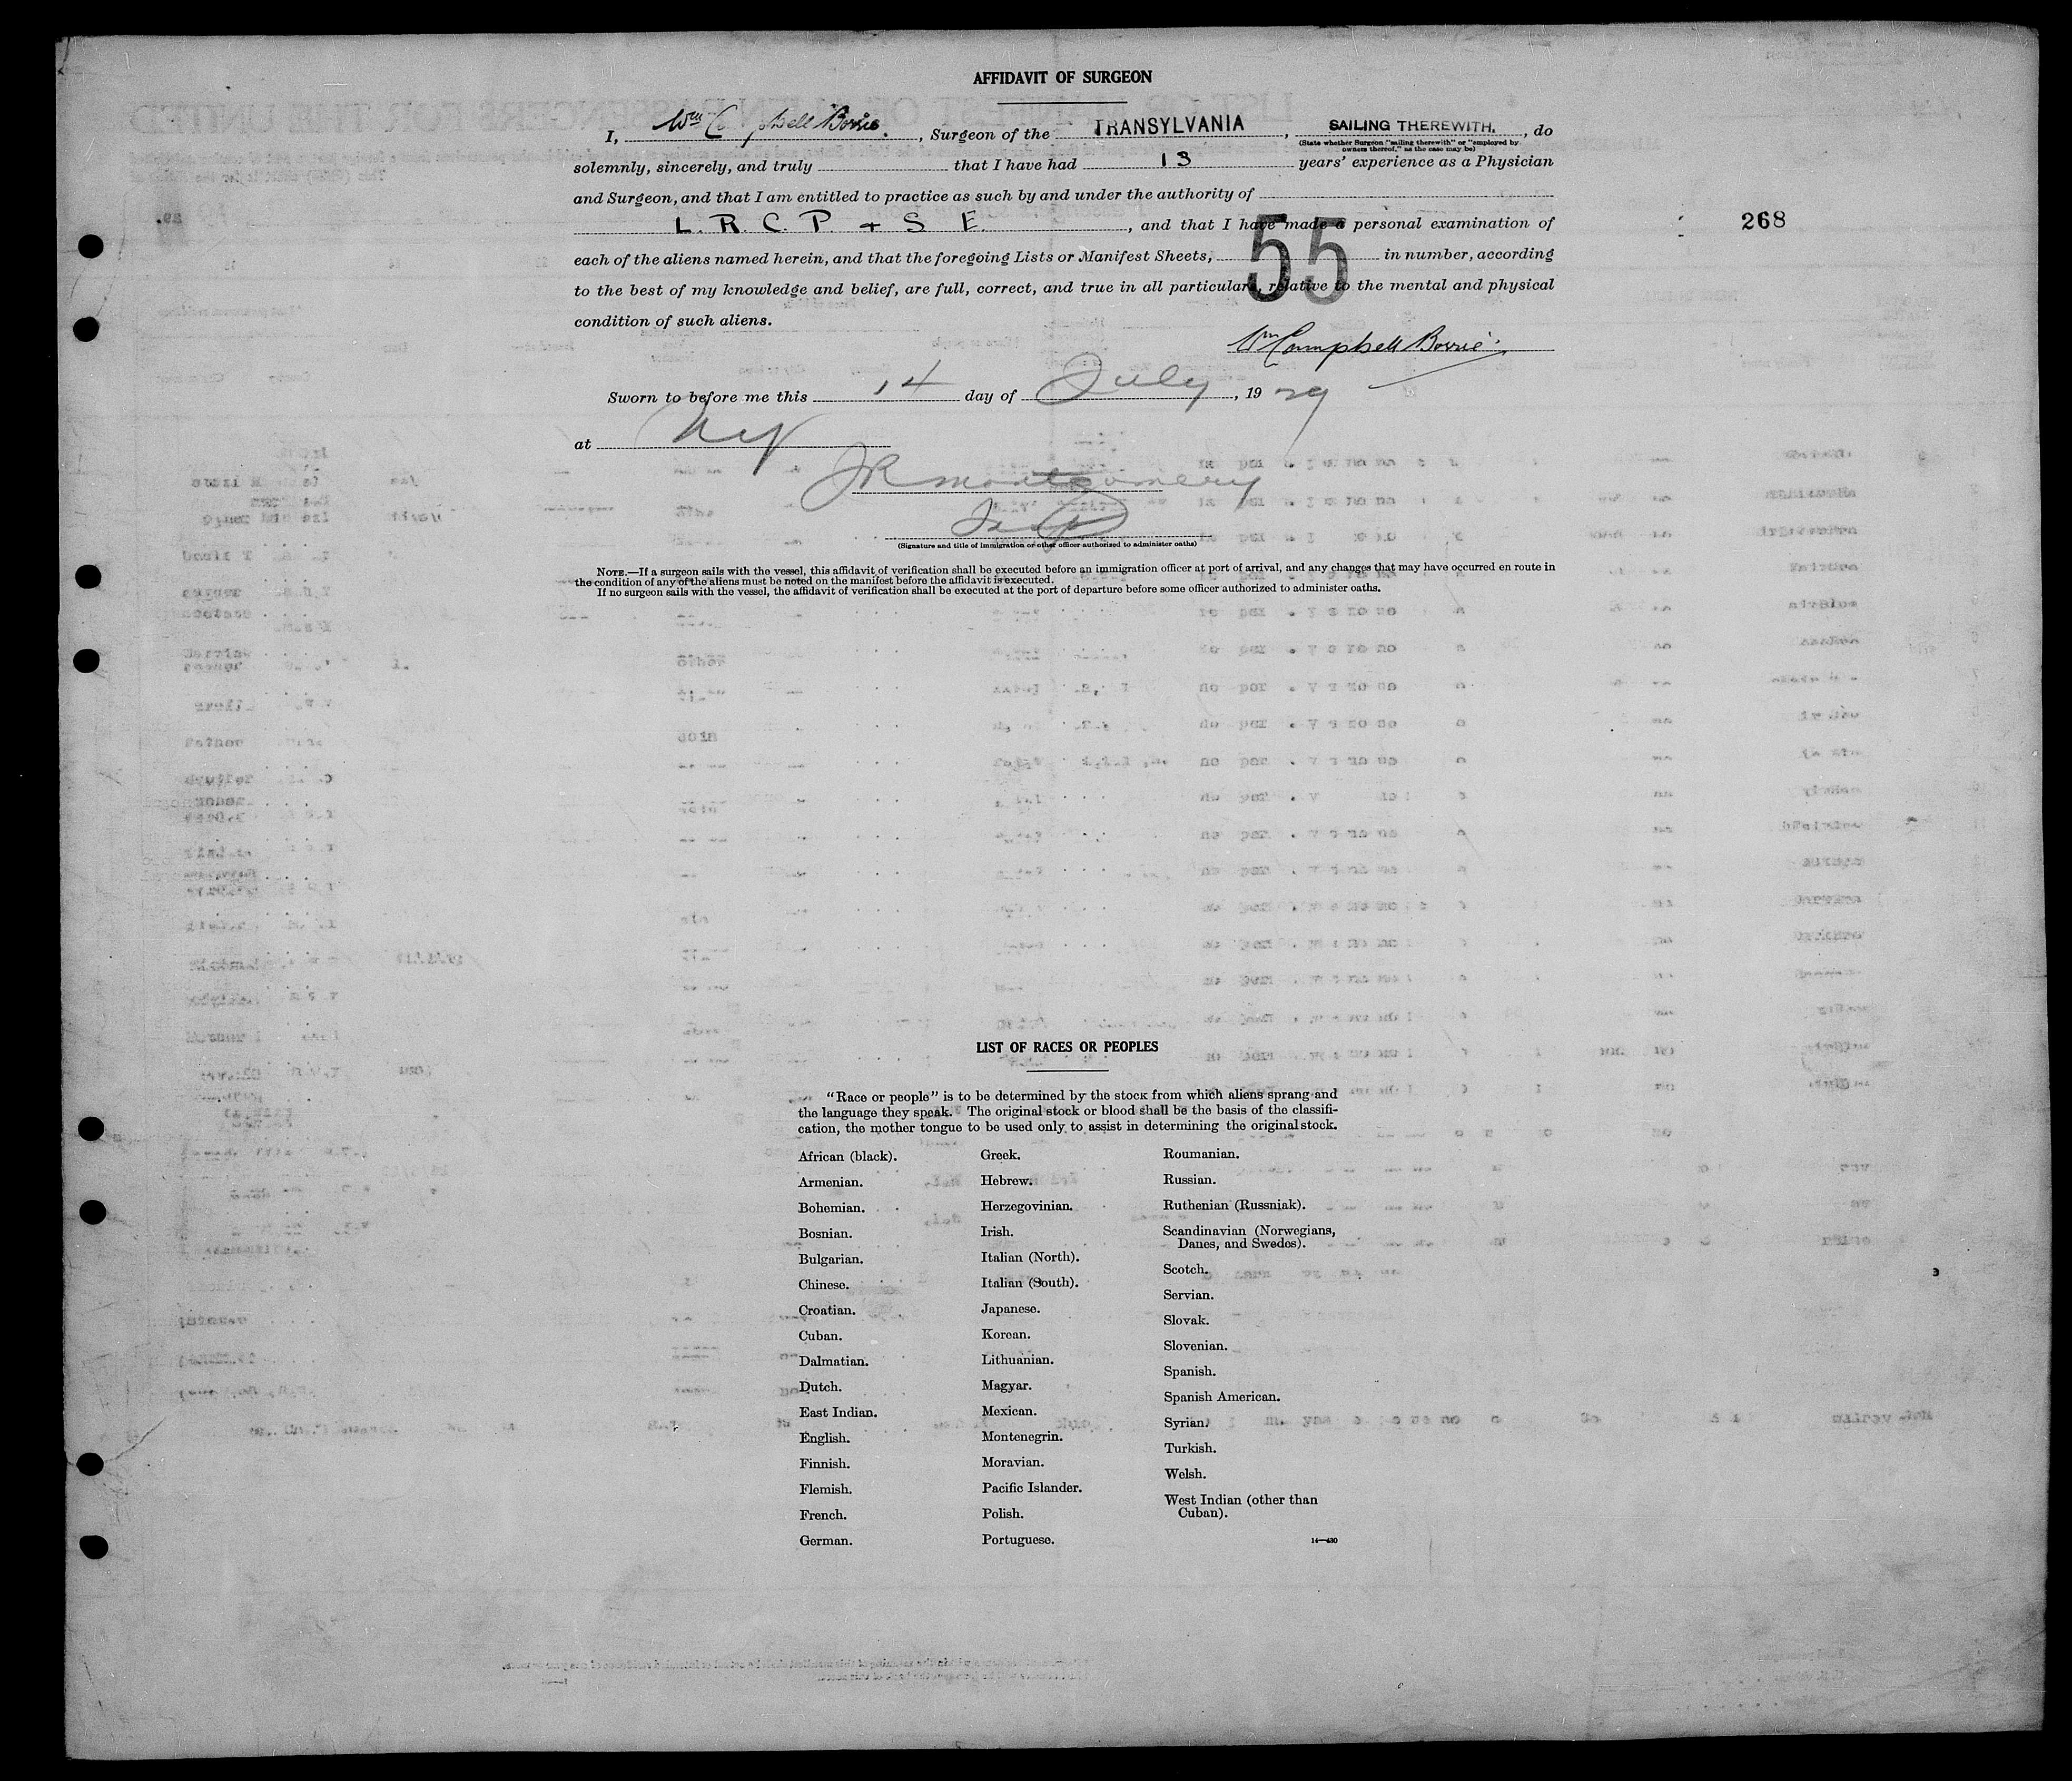 AFFIDAVIT OF SURGEON
I, Wm Campbell Borrie., Surgeon of the TRANSYLVANIA, SAILING THEREWITH., do
(State whether Surgeon "sailing therewith" or "employed by
owners thereof," as the case may be)
solemnly, sincerely, and truly that I have had 13 years' experience as a Physician
and Surgeon, and that I am entitled to practice as such by and under the authority of
L. R. C. P. + S E., and that I have made a personal examination of
268
each of the aliens named herein, and that the foregoing Lists or Manifest Sheets, 55 in number, according
to the best of my knowledge and belief, are full, correct, and true in all particulars, relative to the mental and physical
condition of such aliens.
Wm Campbell Borrie.
Sworn to before me this 14 day of July, 1929
at NY
JR Montgomery
(Signature and title of immigration or other officer authorized to administer oaths)
NOTE.—If a surgeon sails with the vessel, this affidavit of verification shall be executed before an immigration officer at port of arrival, and any changes that may have occurred en route in
the condition of any of the aliens must be noted on the manifest before the affidavit is executed.
If no surgeon sails with the vessel, the affidavit of verification shall be executed at the port of departure before some officer authorized to administer oaths.
LIST OF RACES OR PEOPLES
"Race or people" is to be determined by the stock from which aliens sprang and
the language they speak. The original stock or blood shall be the basis of the classifi-
cation, the mother tongue to be used only to assist in determining the original stock.
African (black).
Armenian.
Bohemian.
Bosnian.
Bulgarian.
Chinese.
Croatian.
Cuban.
Dalmatian.
Dutch.
East Indian.
English.
Finnish.
Flemish.
French.
German.
Greek.
Hebrew.
Herzegovinian.
Irish.
Italian (North).
Italian (South).
Japanese.
Korean.
Lithuanian.
Magyar.
Mexican.
Montenegrin.
Moravian.
Pacific Islander.
Polish.
Portuguese.
Roumanian.
Russian.
Ruthenian (Russniak).
Scandinavian (Norwegians,
Danes, and Swedes).
Scotch.
Servian.
Slovak.
Slovenian.
Spanish.
Spanish American.
Syrian.
Turkish.
Welsh.
West Indian (other than
Cuban).
14—430